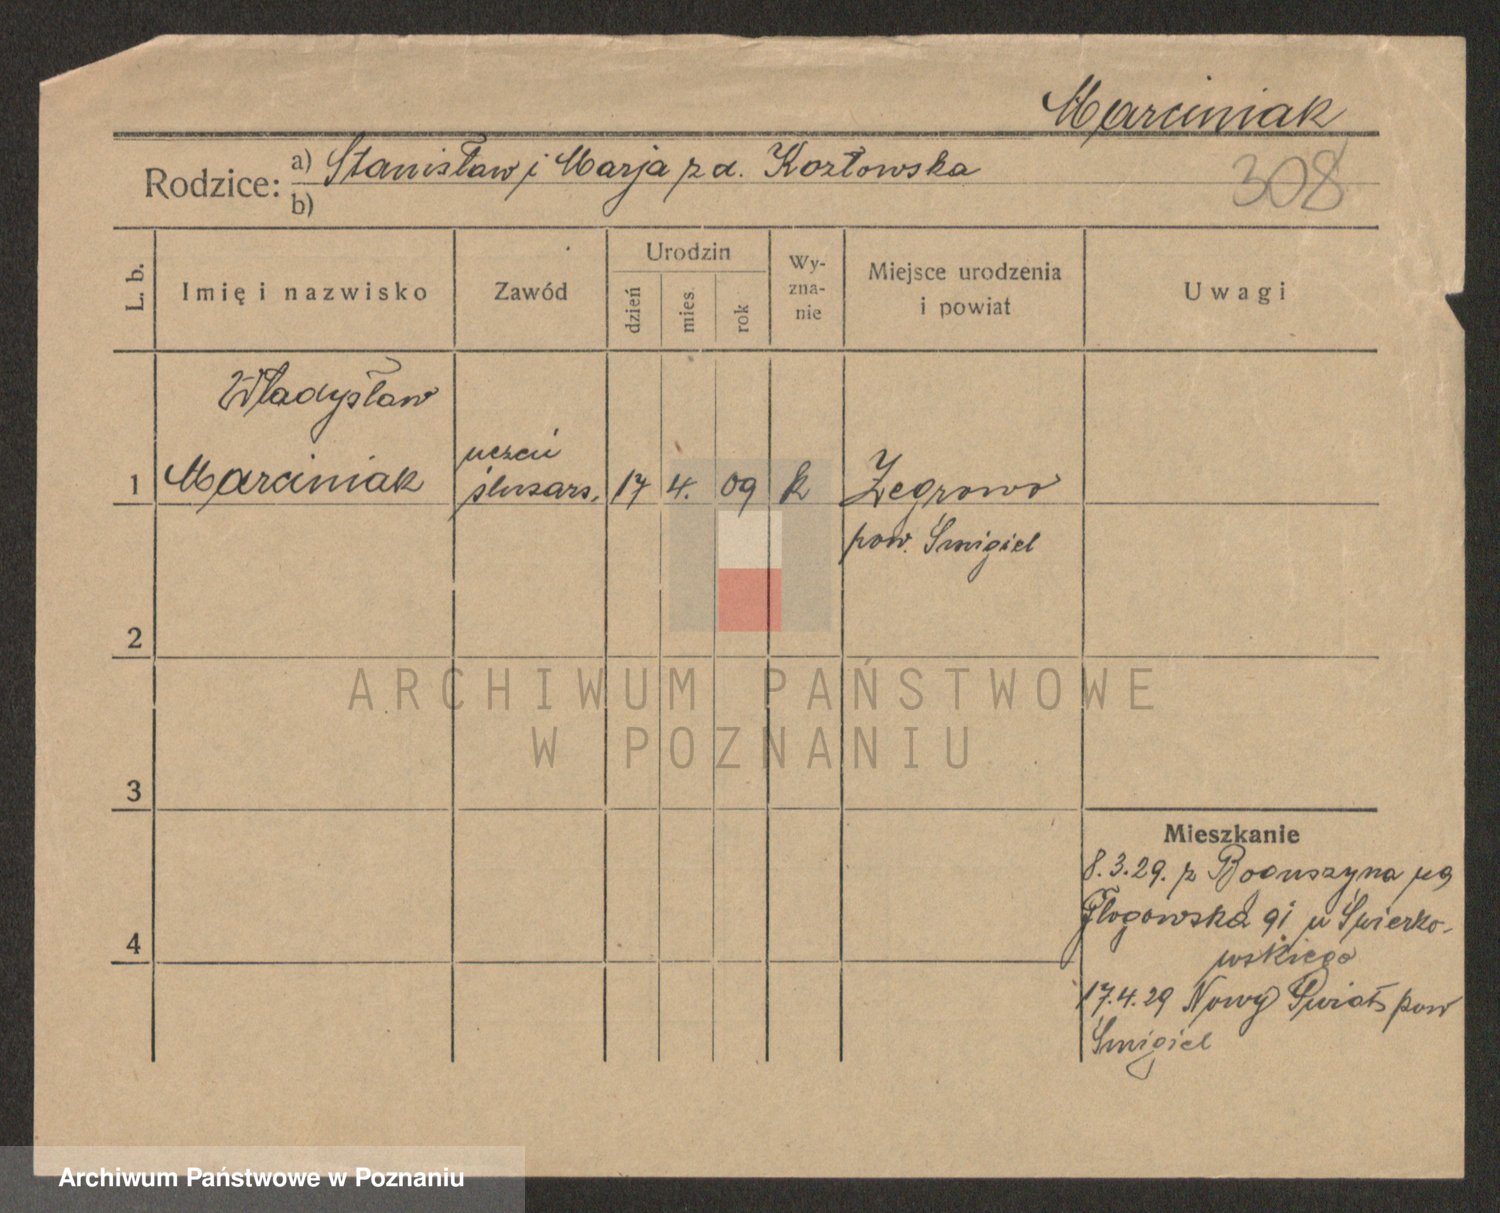 Marciniak
308
Rodzice: a) Stanisław i Marja z d. Kozłowska
b)
L. b.
Imię i nazwisko
Zawód
Urodzin
dzień
mies.
rok
Wy-
zna-
nie
Miejsce urodzenia
i powiat
Uwagi
Władysław
1 Marciniak
uczeń
ślusars.
17 4. 09 k
Zegrowo
pow. Śmigiel
2
ARCHIWUM PAŃSTWOWE
W POZNANIU
3
4
Mieszkanie
8.3.29. z Boguszyna na
Głogowska 91 u Świerko-
wskiego
17.4.29 Nowy Świat pow
Śmigiel
Archiwum Państwowe w Poznaniu